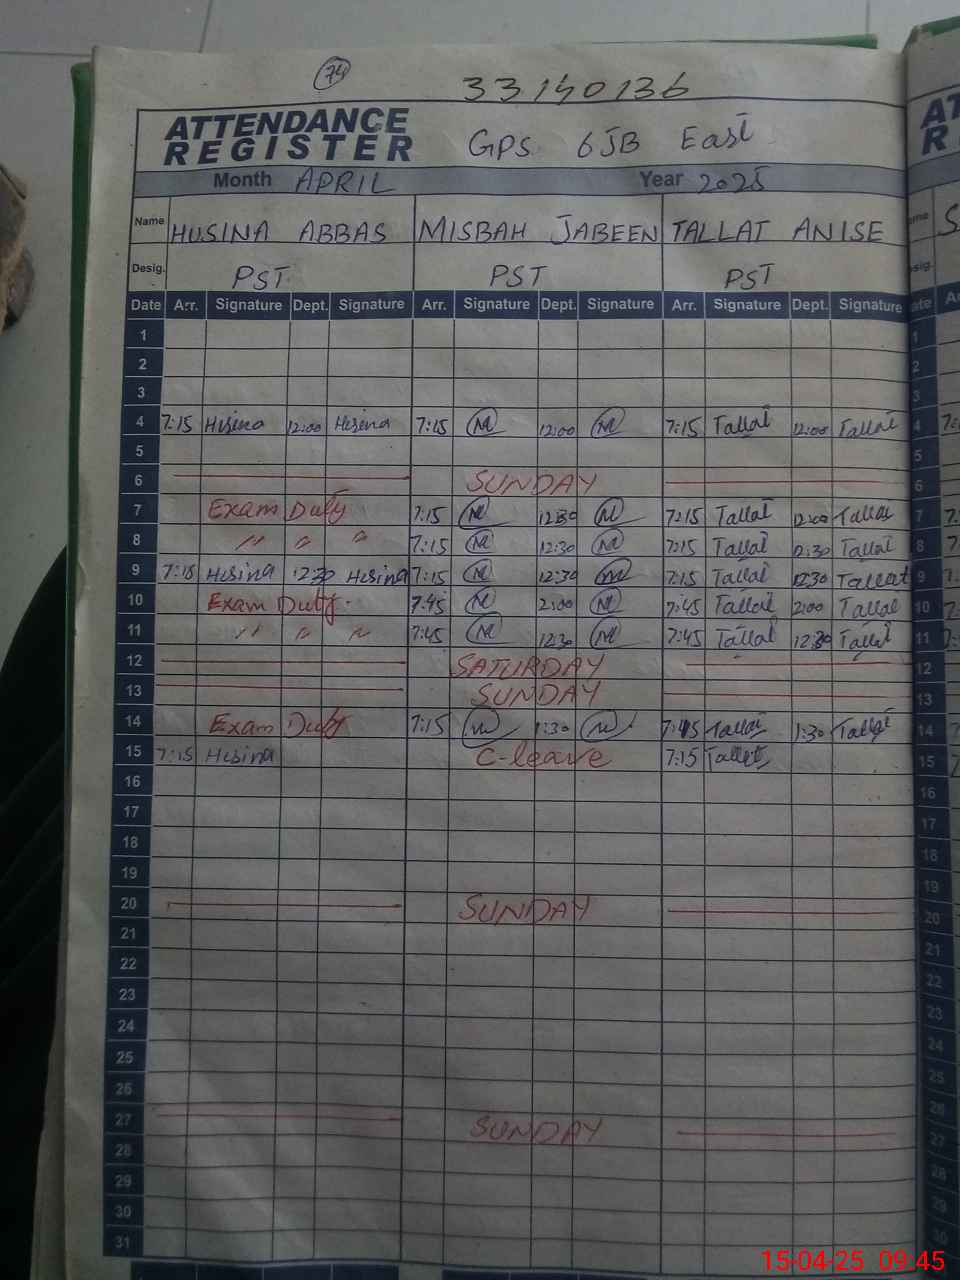 74
33140136
ATTENDANCE
REGISTER
GPS 6JB East
Month APRIL Year 2025
Name HUSINA ABBAS MISBAH JABEEN TALLAT ANISE
Desig. PST PST PST
Date Arr. Signature Dept. Signature Arr. Signature Dept. Signature Arr. Signature Dept. Signature
1
2
3
4 7:15 Husina 12:00 Husina 7:15 M 12:00 M 7:15 Tallat 12:00 Tallat
5
6 SUNDAY
7 Exam Duty 7:15 M 12:30 M 7:15 Tallat Tallat
8 " " " 7:15 M 12:30 M 7:15 Tallat 12:30 Tallat
9 7:15 Husina 12:30 Husina 7:15 M 12:30 M 7:15 Tallat 12:30 Tallat
10 Exam Duty 7:45 M 2:00 M 7:45 Tallat 2:00 Tallat
11 " " " 7:45 M 12:30 M 7:45 Tallat 12:30 Tallat
12 SATURDAY
13 SUNDAY
14 Exam Duty 7:15 M 1:30 M Tallat 1:30 Tallat
15 7:15 Husina C-leave 7:15 Tallat
16
17
18
19
20 SUNDAY
21
22
23
24
25
26
27 SUNDAY
28
29
30
31
15-04-25 09:45